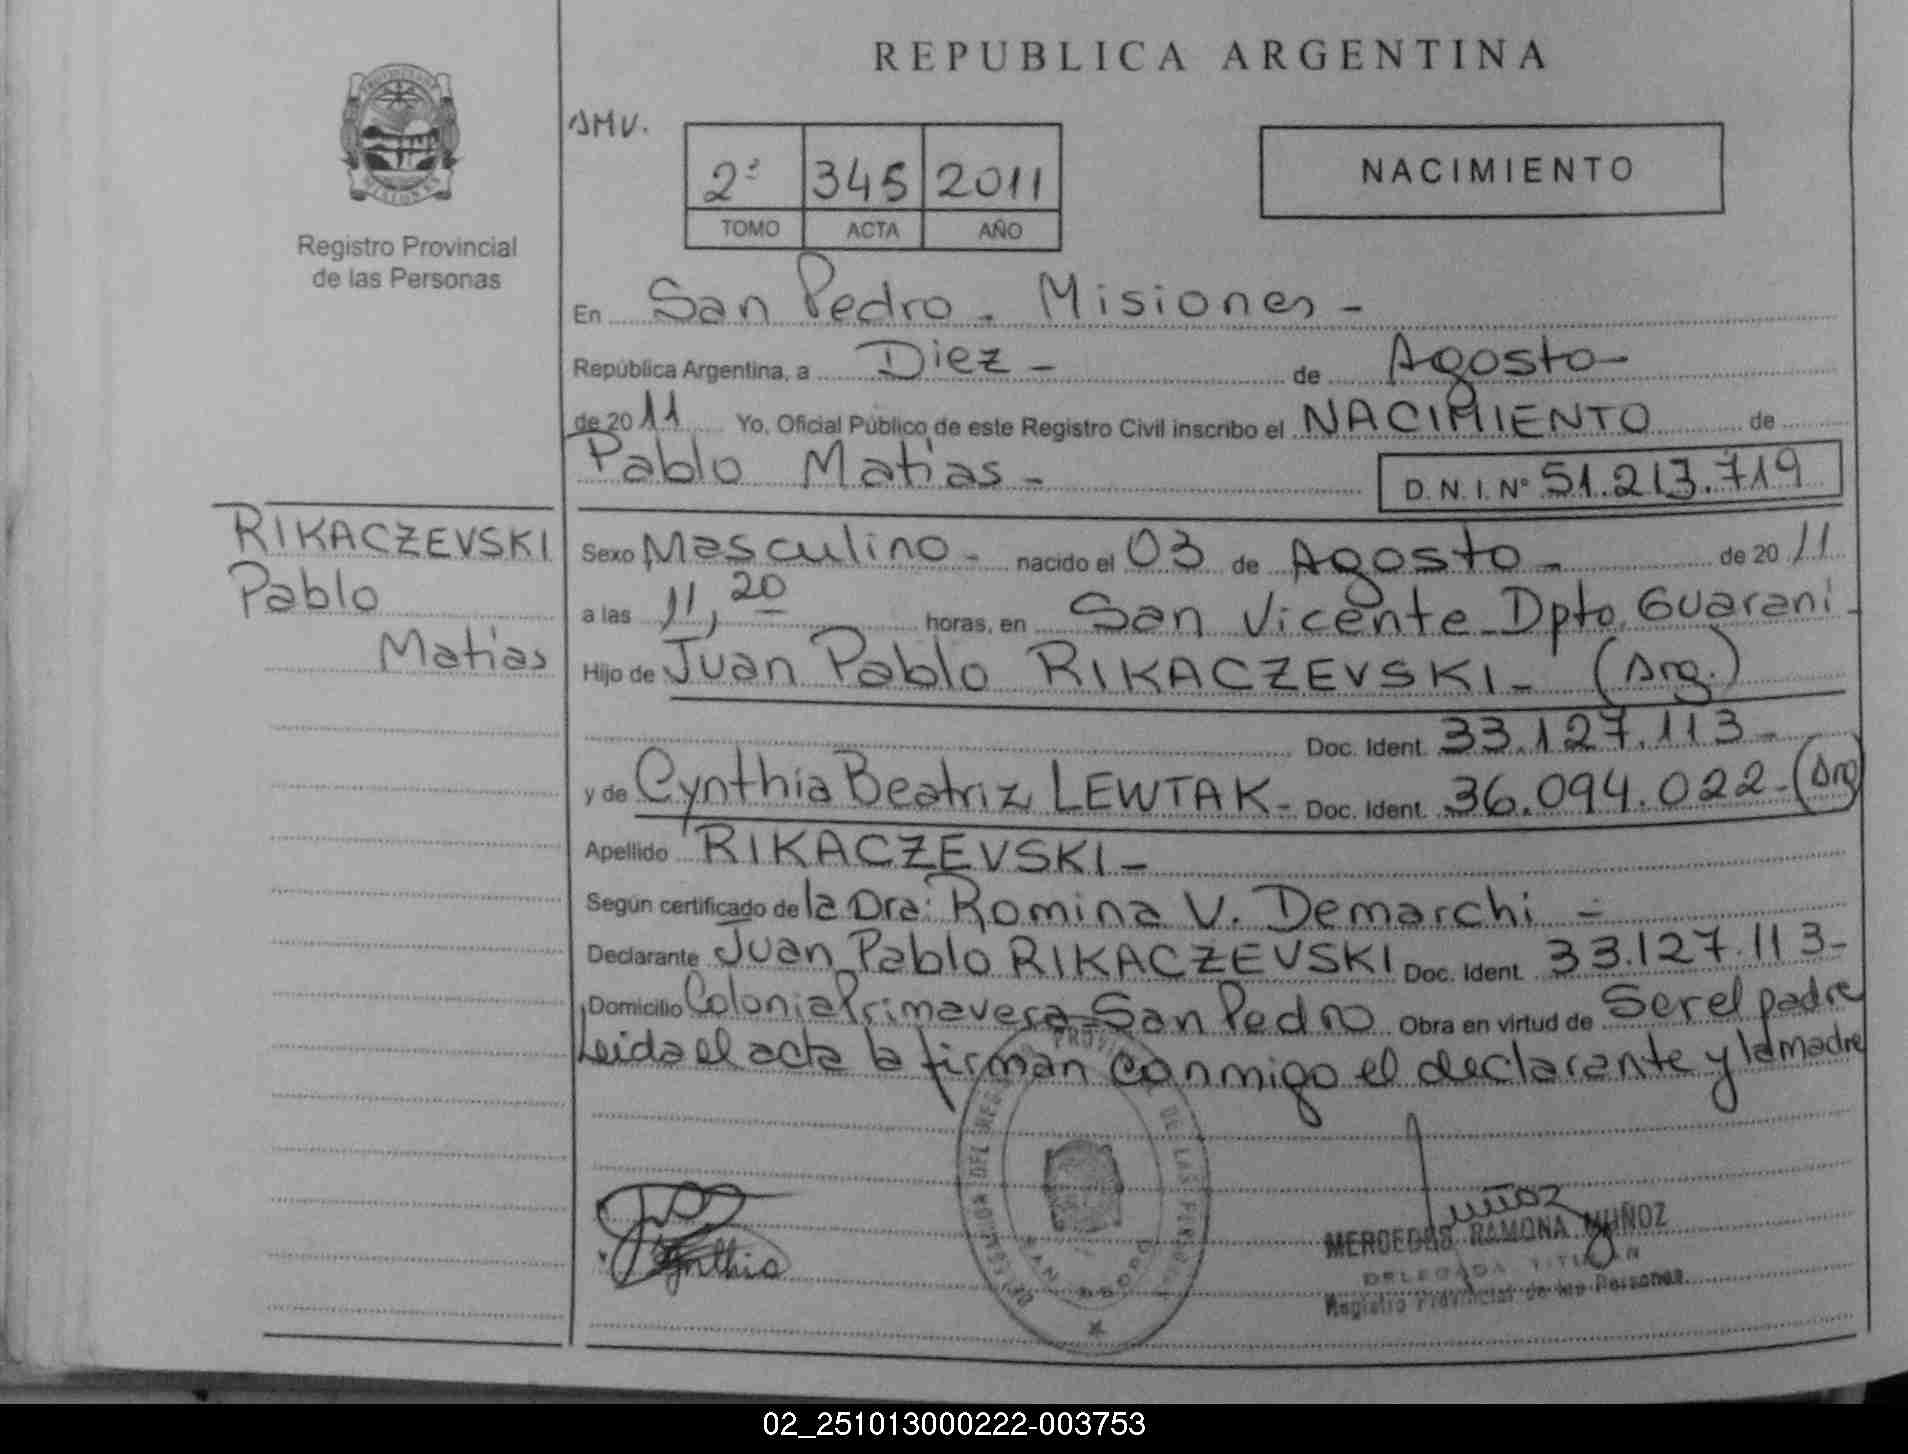 REPUBLICA ARGENTINA
SMV.
2º 345 2011
TOMO ACTA AÑO
NACIMIENTO
MISIONES
Registro Provincial
de las Personas
En San Pedro - Misiones -
República Argentina, a Diez - de Agosto -
de 2011 Yo, Oficial Público de este Registro Civil inscribo el NACIMIENTO de
Pablo Matías - D.N.I. Nº 51.213.719
RIKACZEVSKI
Pablo
Matías
Sexo Masculino - nacido el 03 de Agosto - de 2011
a las 11,20 horas, en San Vicente Dpto. Guaraní -
Hijo de Juan Pablo RIKACZEVSKI - (Arg.)
Doc. Ident. 33.127.113 -
y de Cynthia Beatriz LEWTAK - Doc. Ident. 36.094.022 - (Arg
Apellido RIKACZEVSKI -
Según certificado de la Dra: Romina V. Demarchi -
Declarante Juan Pablo RIKACZEVSKI Doc. Ident. 33.127.113 -
Domicilio Colonia Primavera - San Pedro Obra en virtud de Ser el padre
Leida el acta la firman conmigo el declarante y la madre
Cynthia
PROVINCIAL DE LAS PERSONAS
SAN PEDRO
Muñoz
MERCEDES RAMONA MUÑOZ
DELEGADA TITULAR
Registro Provincial de las Personas
02_251013000222-003753